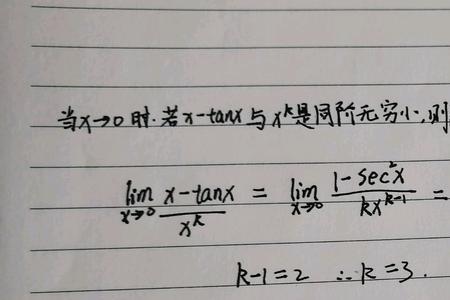 当x→0时.若x-tanx与x^k是同阶无穷小,则
lim_{x→0} \frac{x-tanx}{x^k} = lim_{x→0} \frac{1-sec^2x}{kx^{k-1}} =
k-1=2 ∴k=3.